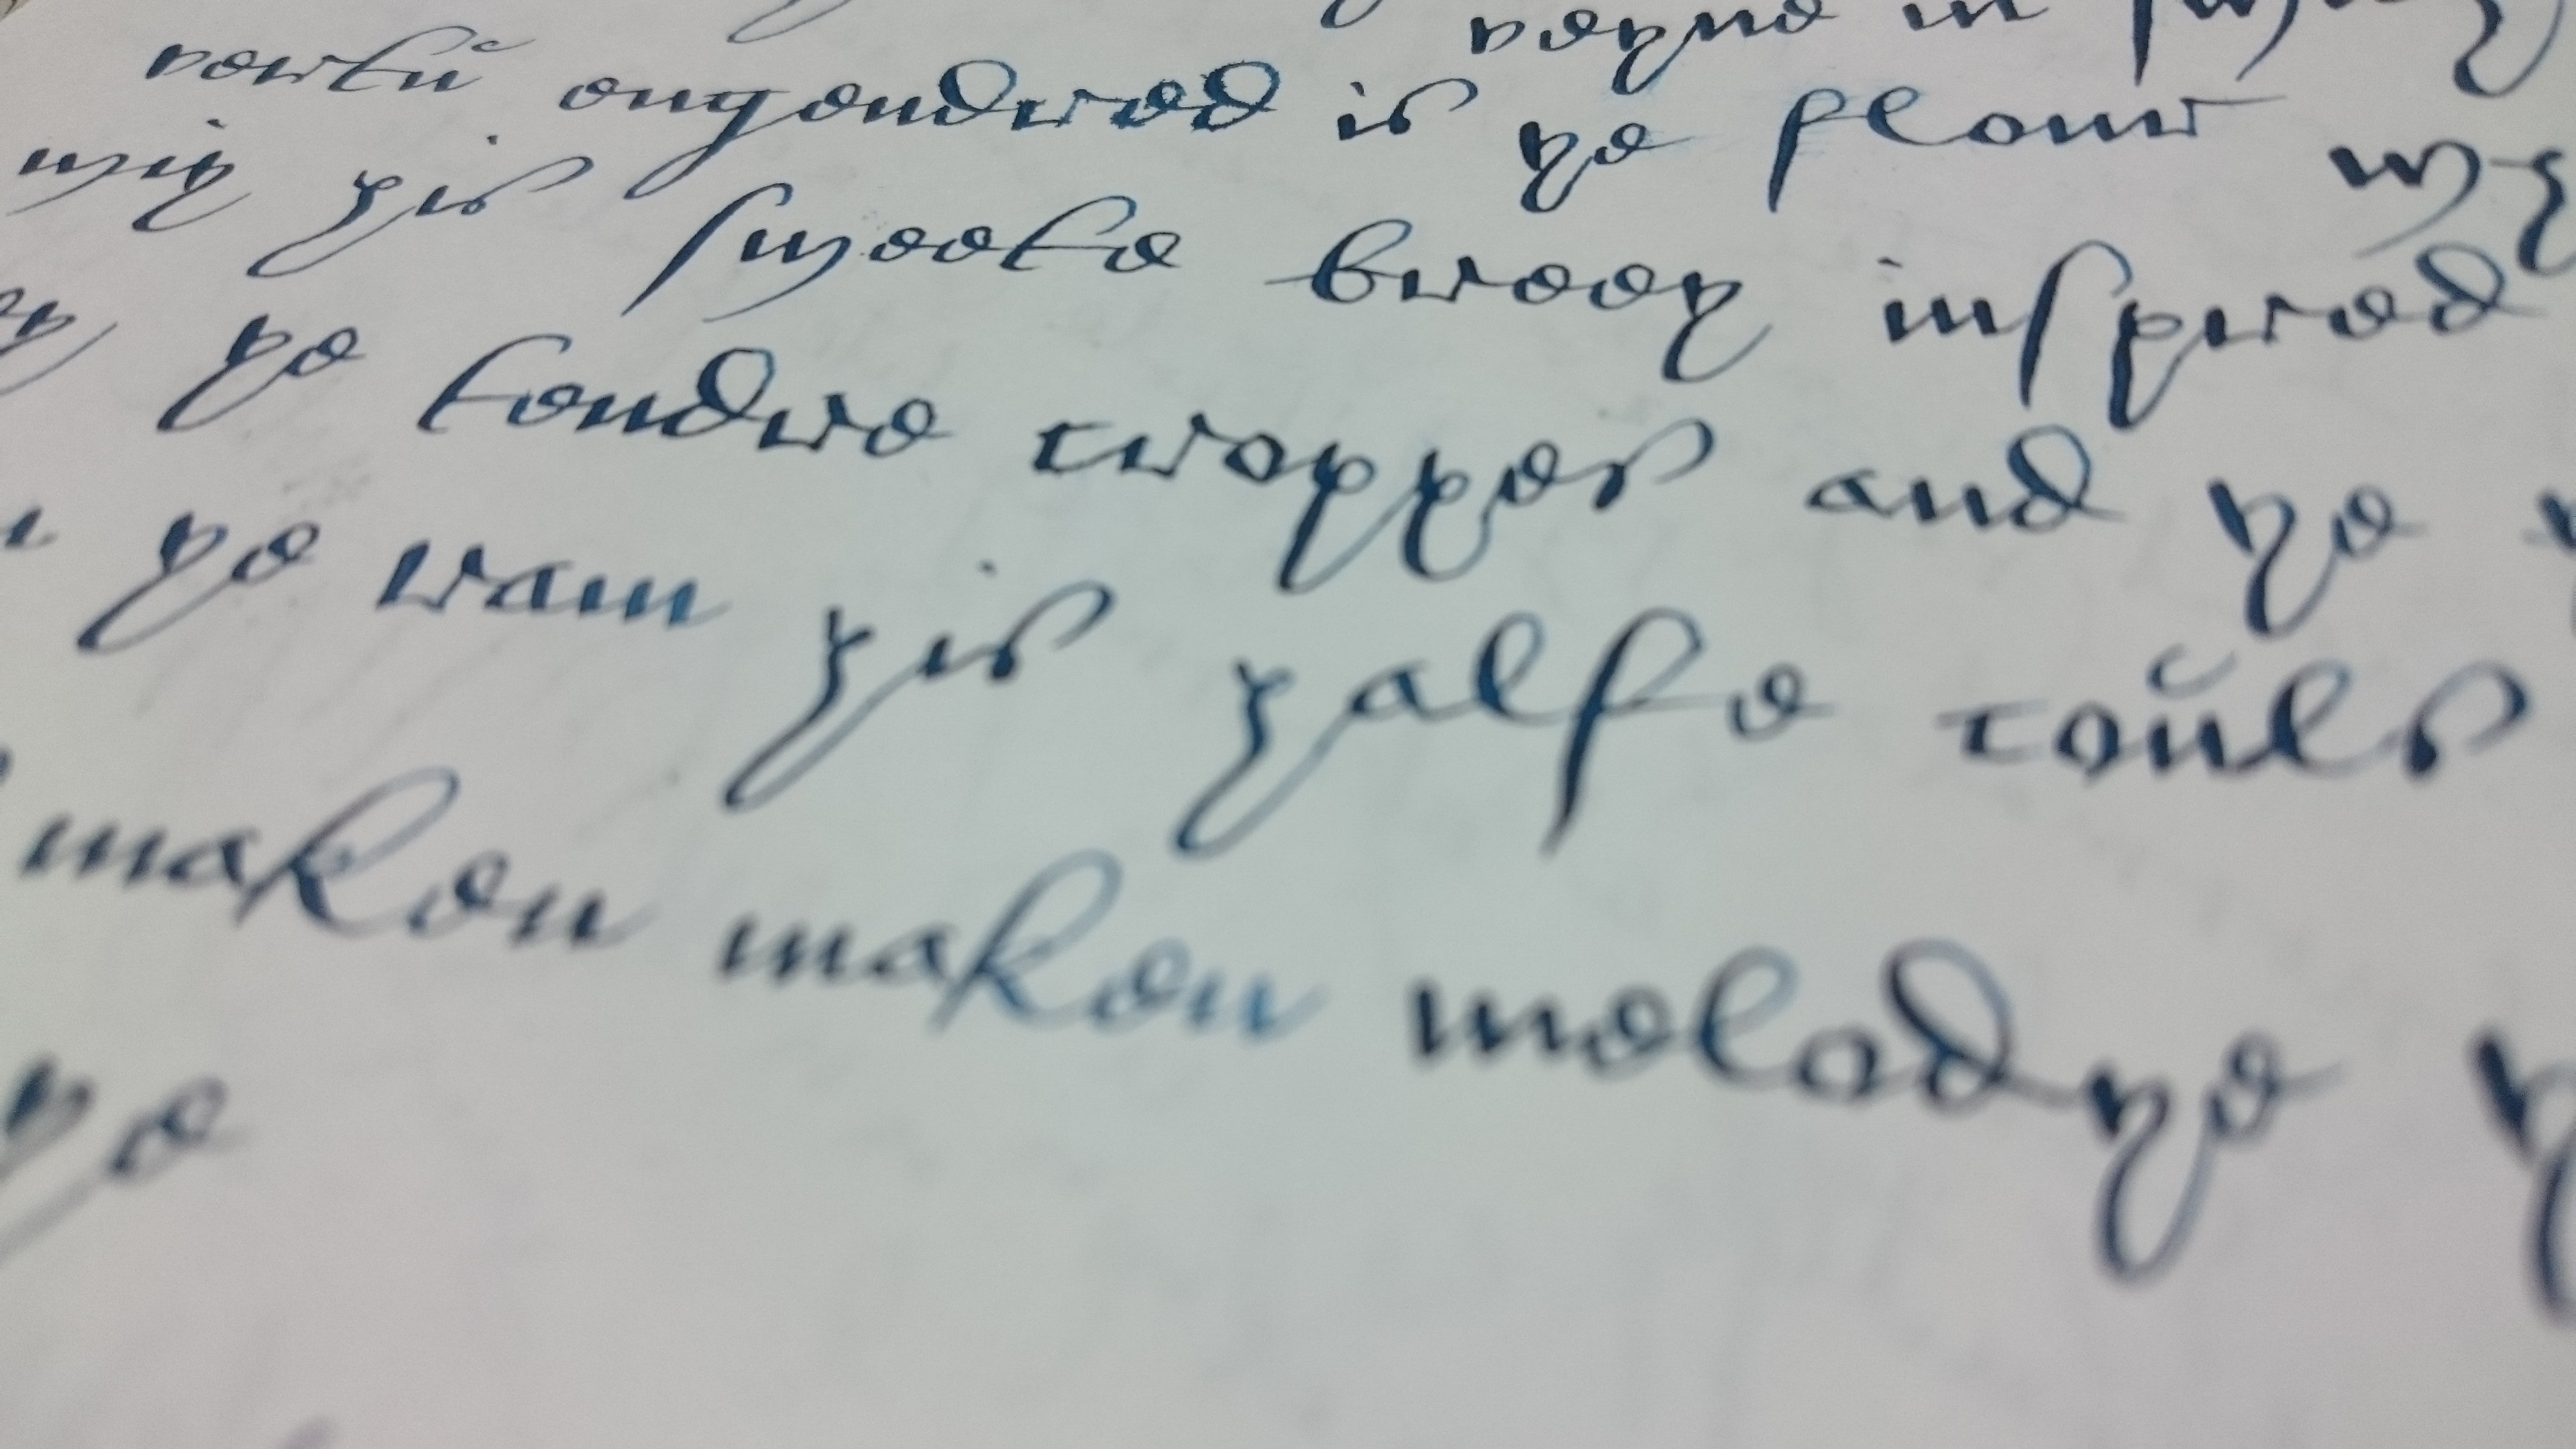 veyne in ſwich
vertŭ engendred is ye flour
wiy his ſweete breey inſpired
ye tendre croppes and ye
ye ram his halfe coŭls
maken maken melodye
ye